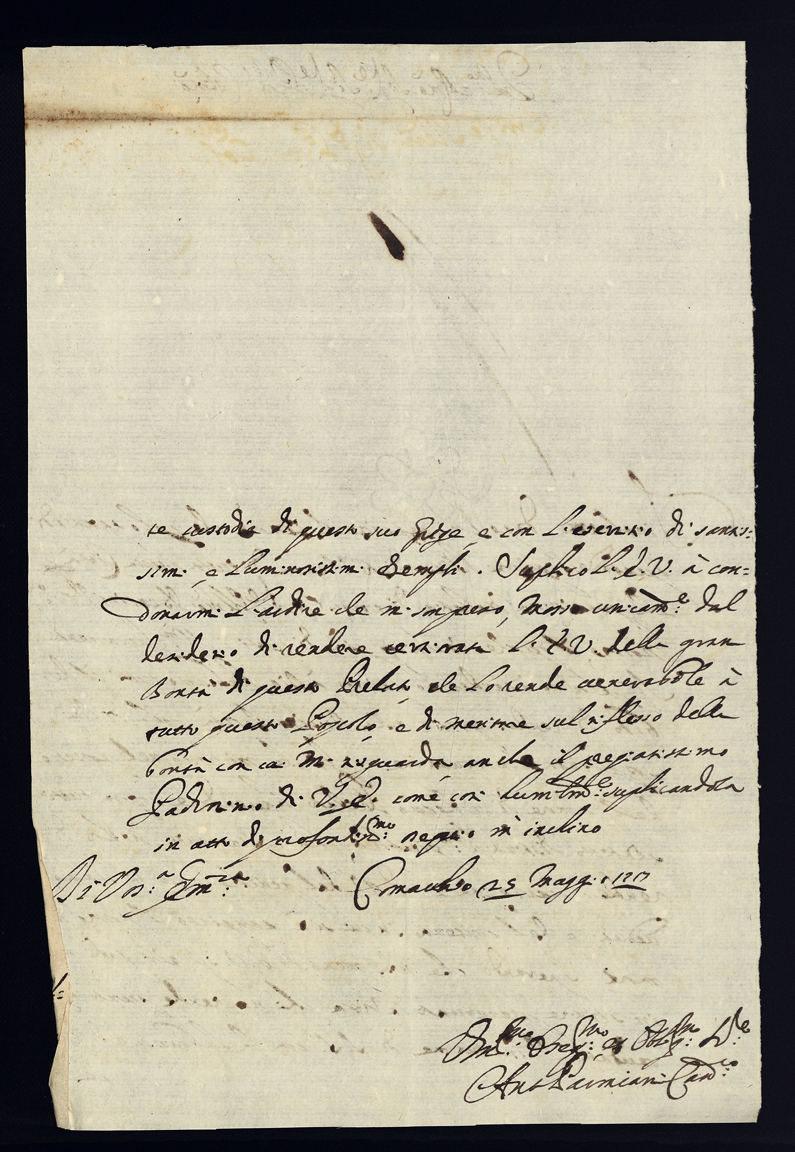 te custodia di questo suo Gige, e con l'esercitio di santis=
simi, e Luminosissimi Esempli. Suplico l'E.V. à con=
donarmi L'ardire che mi son preso, mosso unicam.e dal
desiderio di rendere cerziorata l'E.V. della gran
Bontà di questo Prelato, che Lo rende venerabbile à
tutto questo Popolo, e di me sul riflesso della
bontà con cui mi riguarda anche il pregiatissimo
Padrinio di V.E. come così humilm.e suplicandola
in atto di profondiss.mo ossequio m'inchino
Di Vos.a Em.za
Comacchio 25 Maggio 1717
Hu.mo Dev.mo et Obblig.mo S.re
Ant. Parmiani Can.co